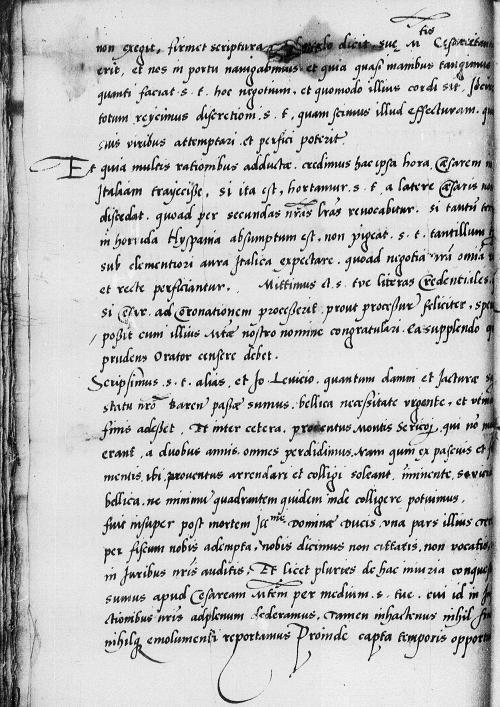 tis
non exegit, firmet scriptura dicit, sue M Cesaree
erit, et nos in portu navigabimus. et quia quasi manibus tangimus
quanti faciat .s. t. hoc negotium, et quomodo illius cordi sit,
totum reycimus discretioni .s. t. quam scimus illud effecturam.
suis viribus attemptari et perfici poterit.
Et quia multis rationibus adducti credimus hac ipsa hora, Cesarem in
Italiam trayecisse, si ita est, hortamur .s. t. a latere Cesaris non
discedat, quoad per secundas nras lras revocabitur. si tantum
in horrida Hyspania absumptum est, non pigeat .s. t. tantillum
sub clementiori aura Italica expectare, quoad negotia nri omnia
et recte perficiantur. Mittimus et .s. tue literas Credentiales
si Cesar. ad Coronationem processerit, prout procestur feliciter,
possit cum illius Mtae nostro nomine congratulari. Ea supplendo
prudens Orator censere debet.
Scripsimus .s. t. alias, et Jo Levicio, quantum damni et Jacturae
statu nro Baren passae sumus. bellica necessitate urgente, et
finis adesset. Et inter cetera, proventus Montis Sericoj, qui no
erant, a duobus annis omnes perdidimus. Nam quum ex pascuis et
mentis, ibi proventus arrendari et colligi soleant, iminente
bellica, ne minimu quadrantem quidem inde colligere potuimus.
fuit insuper post mortem Ill me Domine Ducis, una pars illius
per fiscum nobis adempta, nobis dicimus non cittatis, non vocatis,
in Juribus nris auditis. Et licet pluries de hac iniuria
sumus apud Cesaream Mtem per medium .s. tue. cui id in
ctionibus nris adplenum dederamus, Tamen inhactenus nihil
nihilq emolumenti reportamus Proinde capta temporis